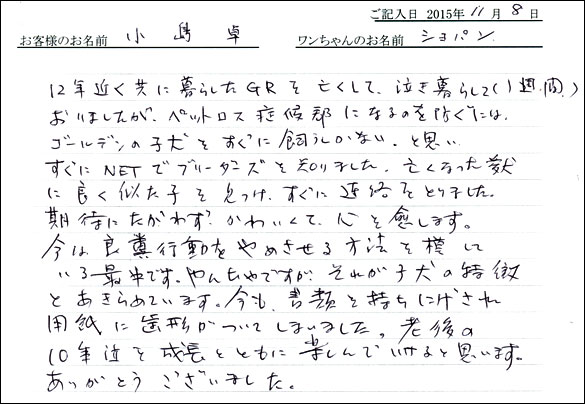 ご記入日 2015年 11月 8日
お客様のお名前 小島 卓 ワンちゃんのお名前 ショパン
12年近く共に暮らしたGRを亡くして、泣き暮らして(1週間)
おりましたが、ペットロス症候郡になるのを防ぐには、
ゴールデンの子犬をすぐに飼うしかない。と思い
すぐにNETでブリーダーズを知りました。亡くなった獣
に良く似た子を見つけ、すぐに連絡をとりました。
期待にたがわず、かわいくて、心を癒します。
今は食糞行動をやめさせる方法を模して
いる最中です。やんちゃですが、それが子犬の特徴
とあきらめています。今も、書類を持ちにげされ
用紙に歯形がついてしまいました。老後の
10年泣を成長とともに楽しんでいけると思います。
ありがとうございました。